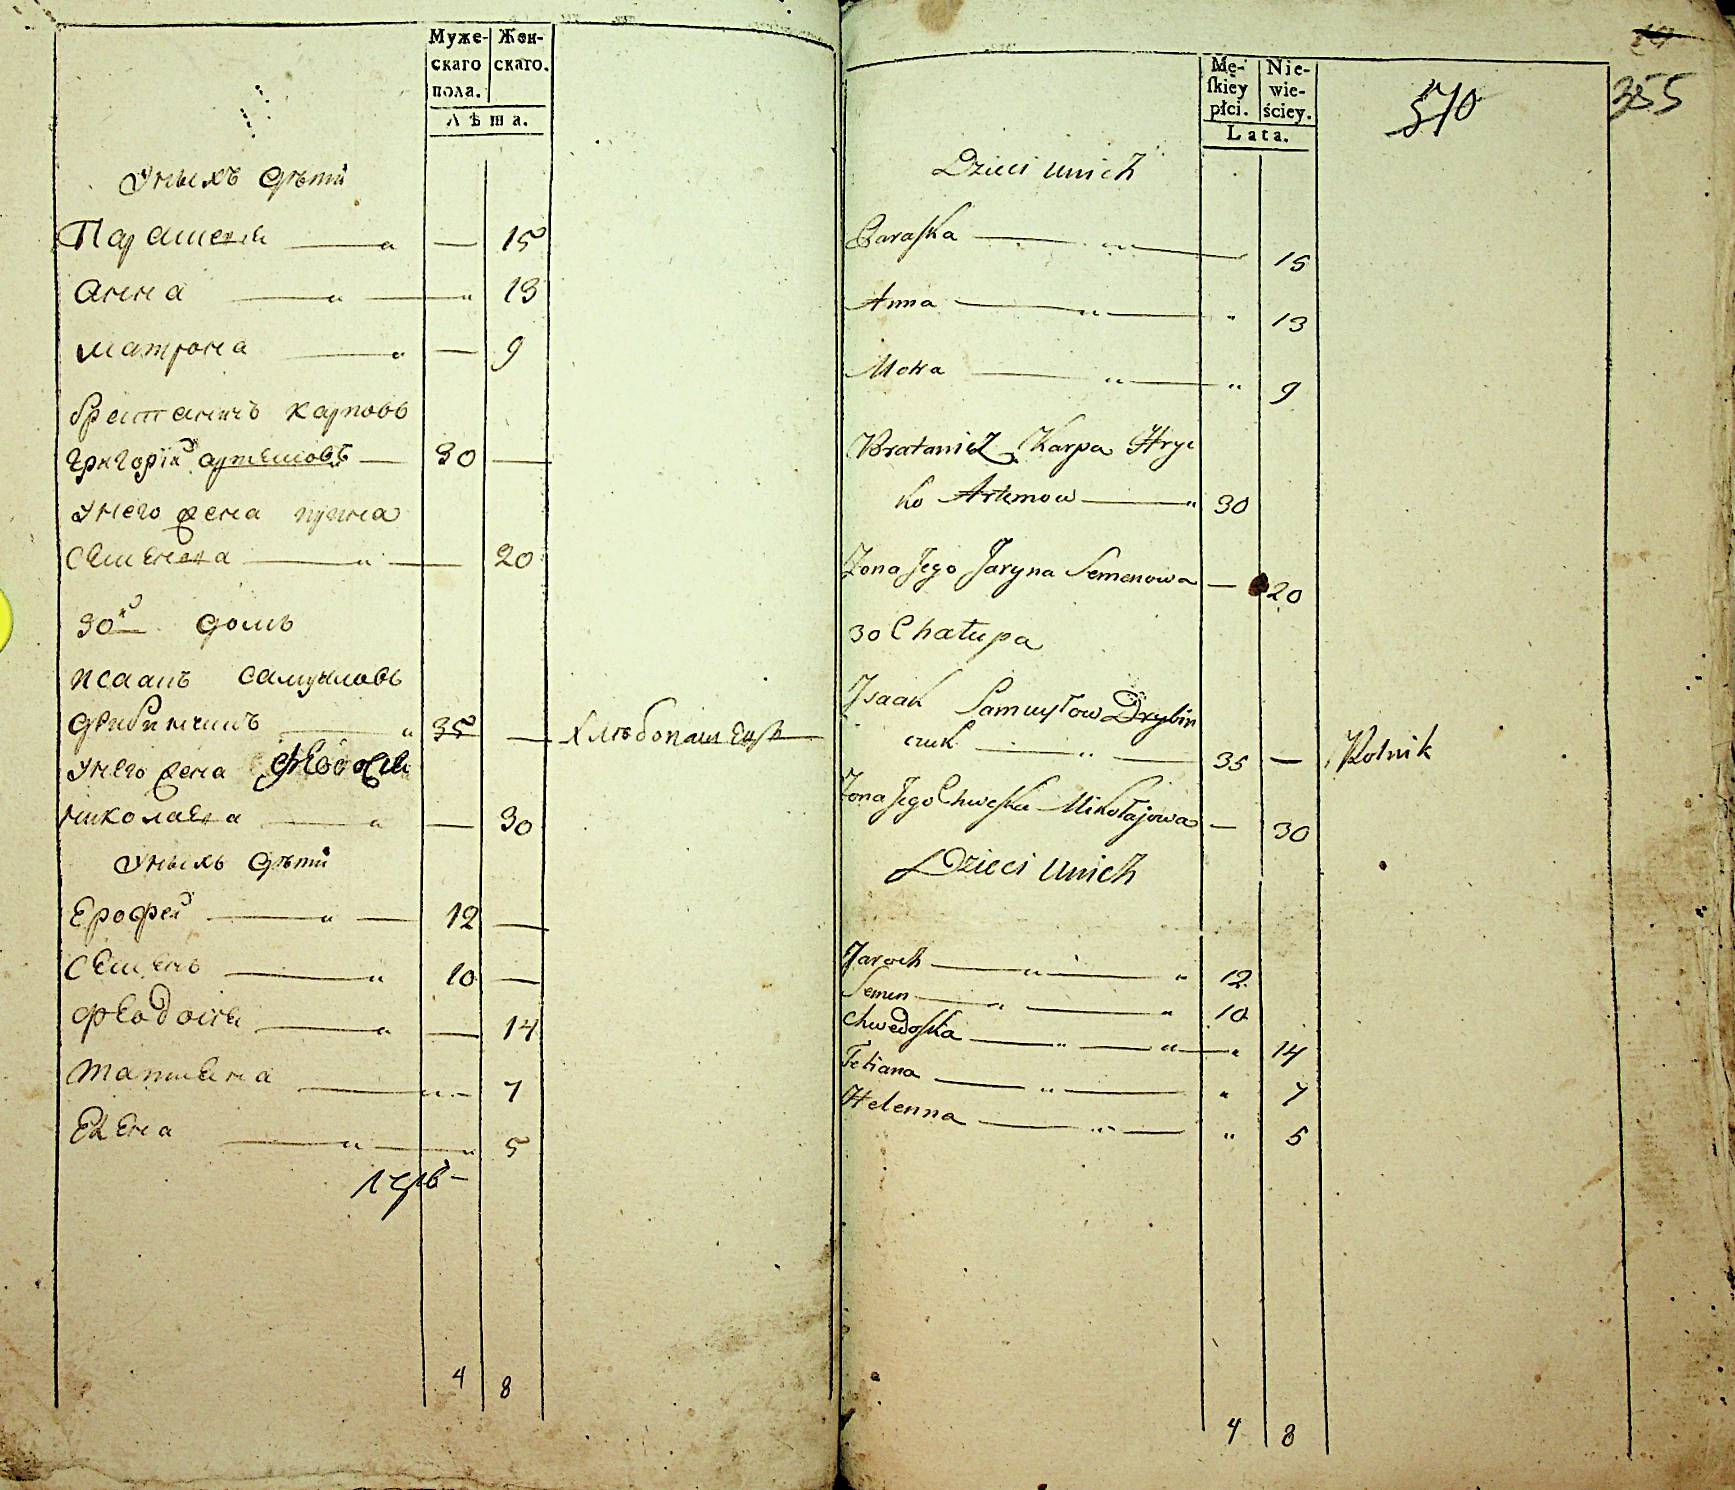 Муже- Жен-
скаго скаго.
пола.
Лѣта.
Уныхъ дѣти
Параскева — 15
Анна — 13
Матрона — 9
братаничъ карповъ
Григорій артемовъ — 30 —
Унего жена ирина
Семенова — 20
30й домъ
исаакъ самуиловъ
дрибинчикъ 35 — хлѣбопашецъ
Унего жена Феодосия
николаева — 30
Уныхъ дѣти
Ерофей — 12 —
Семенъ — 10 —
Феодосия — 14
Татиана — 7
Елена — 5
4 8
Mę- Nie-
ſkiey wie-
płci. ściey.
Lata.
570
355
Dzieci unich
Paraſka — 15
Anna — 13
Motra — 9
Bratanicz Karpa Hryc
ko Artemow — 30
Zona Jego Jaryna Semenowa — 20
30 Chałupa
Jsaak Samuyłow Drybin
czuk — 35 — Rolnik
Zona Jego Chweſka Mikołajowa — 30
Dzieci unich
Jaroch — 12
Semen — 10
Chwedoſka — 14
Tetiana — 7
Helenna — 5
4 8